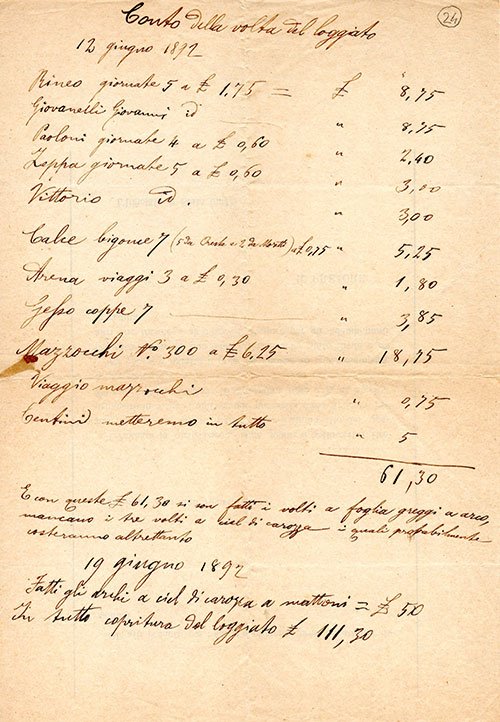 24
Conto della volta del loggiato
12 giugno 1892
Rineo giornate 5 a £ 1,75 = £ 8,75
Giovanelli Giovanni id " 8,75
Paoloni giornate 4 a £ 0,60 " 2,40
Zeppa giornate 5 a £ 0,60 " 3,00
Vittorio id. " 3,00
Calce bigonce 7 (5 da Oreste e 2 da Moretti) a £ 0,75 " 5,25
Arena viaggi 3 a £ 0,30 " 1,80
Gesso coppe 7 " 3,85
Mazzocchi N.° 300 a £ 6,25 " 18,75
Viaggio mazzocchi " 0,75
Centini metteremo in tutto " 5
61,30
E con queste £ 61,30 si son fatti i volti a foglia greggi a arco,
mancano i tre volti a ciel di carozza i quali probabilmente
costeranno altrettanto
19 giugno 1892
Fatti gli archi a ciel di carozza a mattoni = £ 50
In tutto copritura del loggiato £ 111,30